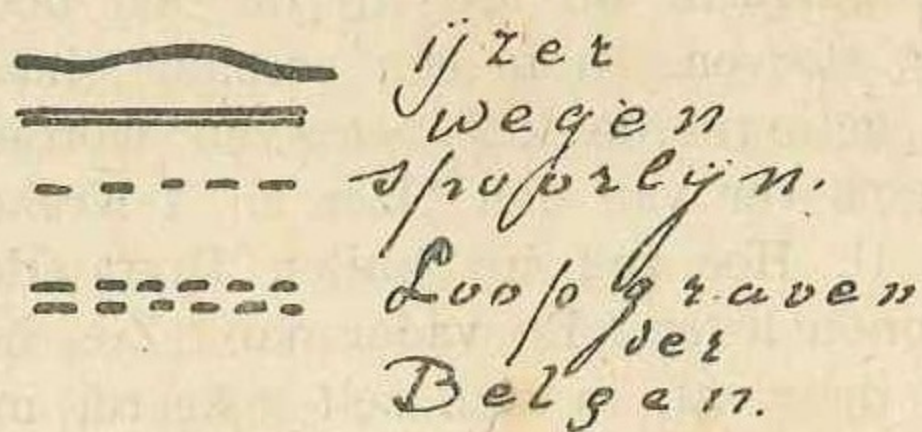 ijzer
wegen
spoorlijn.
Loopgraven
der
Belgen.